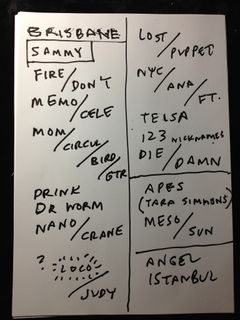 BRISBANE
SAMMY
FIRE/DON'T
MEMO/CELE
MOM/CIRCU/BIRD/GTR
DRINK
DR WORM
NANO/CRANE
? LOCO/JUDY
LOST/PUPPET
NYC/ANA/FT.
TELSA
123 NICKNAMES
DIE/DAMN
APES
(TARA SIMMONS)
MESO/SUN
ANGEL
ISTANBUL